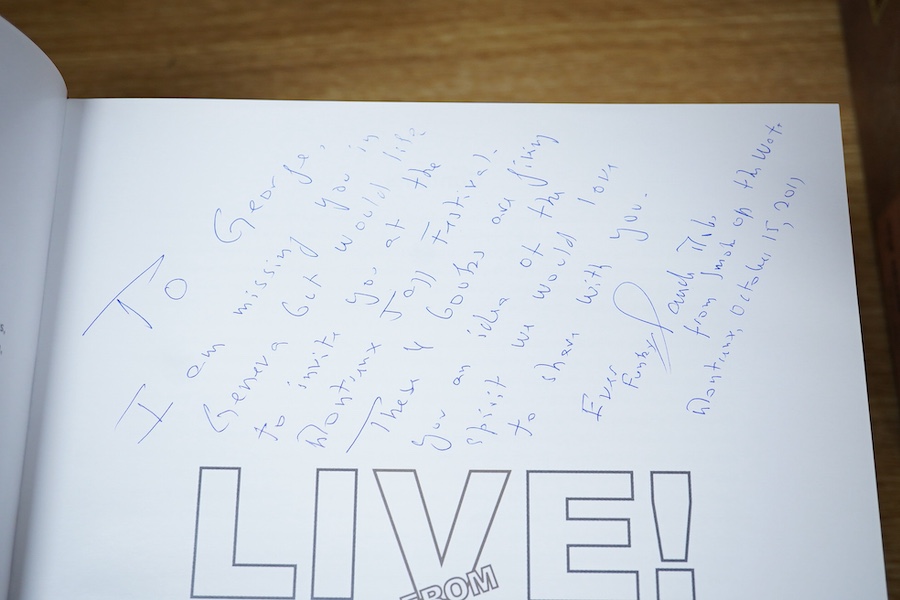 To George,
I am missing you in
Geneva but would like
to invite you at the
Montreux Jazz Festival.
These 4 books are giving
you an idea of the
spirit we would love
to share with you.
Ever
Funky and
from Smoke on the Wat.
Montreux, October 15, 2011
LIVE!
FROM